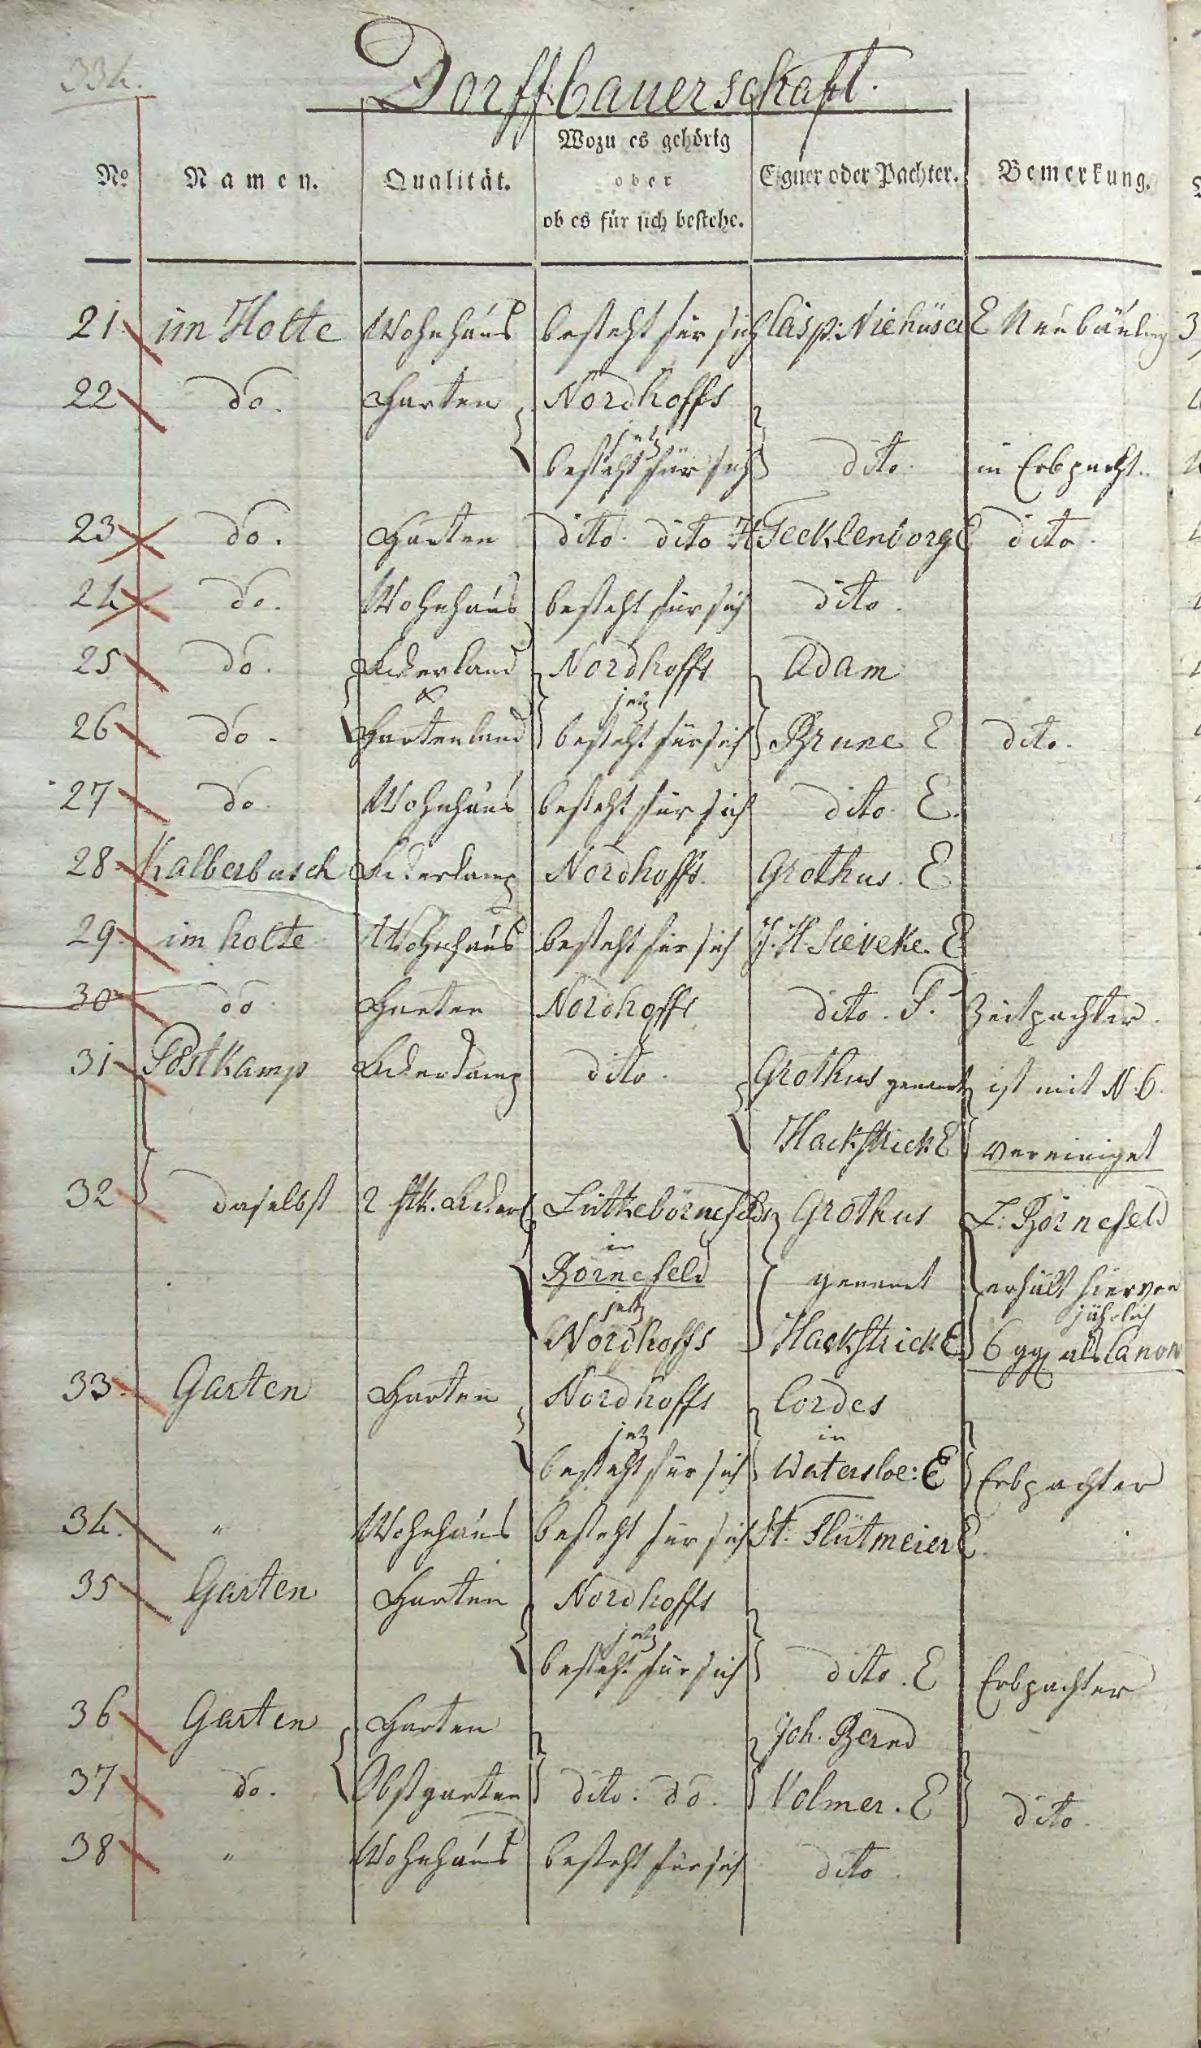 334.
Dorffbauerschaft.
No Namen. Qualität. Wozu es gehörig oder ob es für sich bestehe. Eigner oder Pachter. Bemerkung.
21. im Holte Wohnhaus besteht für sich Casp: Niehüser E Neubäuling
22 do. Garten Nordhoffs
jetz
besteht für sich dito. in Erbpacht.
23 do. Garten dito. dito H Tecklenborg E dito.
24 do. Wohnhaus besteht für sich dito.
25 do. Ackerland Nordhoffs Adam
& jetz
26 do. Gartenland besteht für sich Brune E dito.
27 do. Wohnhaus besteht für sich dito. E.
28 Kalberbusch Ackerkamp Nordhoffs. Grothus. E
29. im holte Wohnhaus besteht für sich J. H Sieveke. E
30 do Garten Nordhoffs dito. P. Zeitpachter.
31 Postkamp Ackerkamp dito. Grothus genannt ist mit N. 6.
Hackstrick E vereiniget
32 daselbst 2 stk. Ackerl Lütkebörnefelds Grothus Z: Börnefeld
in
Börnefeld genannt erhält hiervon
jetz jährlich
Nordhoffs Hackstrick E 6 gg als Canon
33. Garten Garten Nordhoffs Cordes
jetz in
besteht für sich Watersloe: E Erbpachter
34. " Wohnhaus besteht für sich St. Flütmeier E.
35 Garten Garten Nordhoffs
jetz
besteht für sich dito. E Erbpachter
36 Garten Garten Joh. Bernd
37 do. Obstgarten dito: do. Volmer. E dito.
38 " Wohnhaus besteht für sich dito.